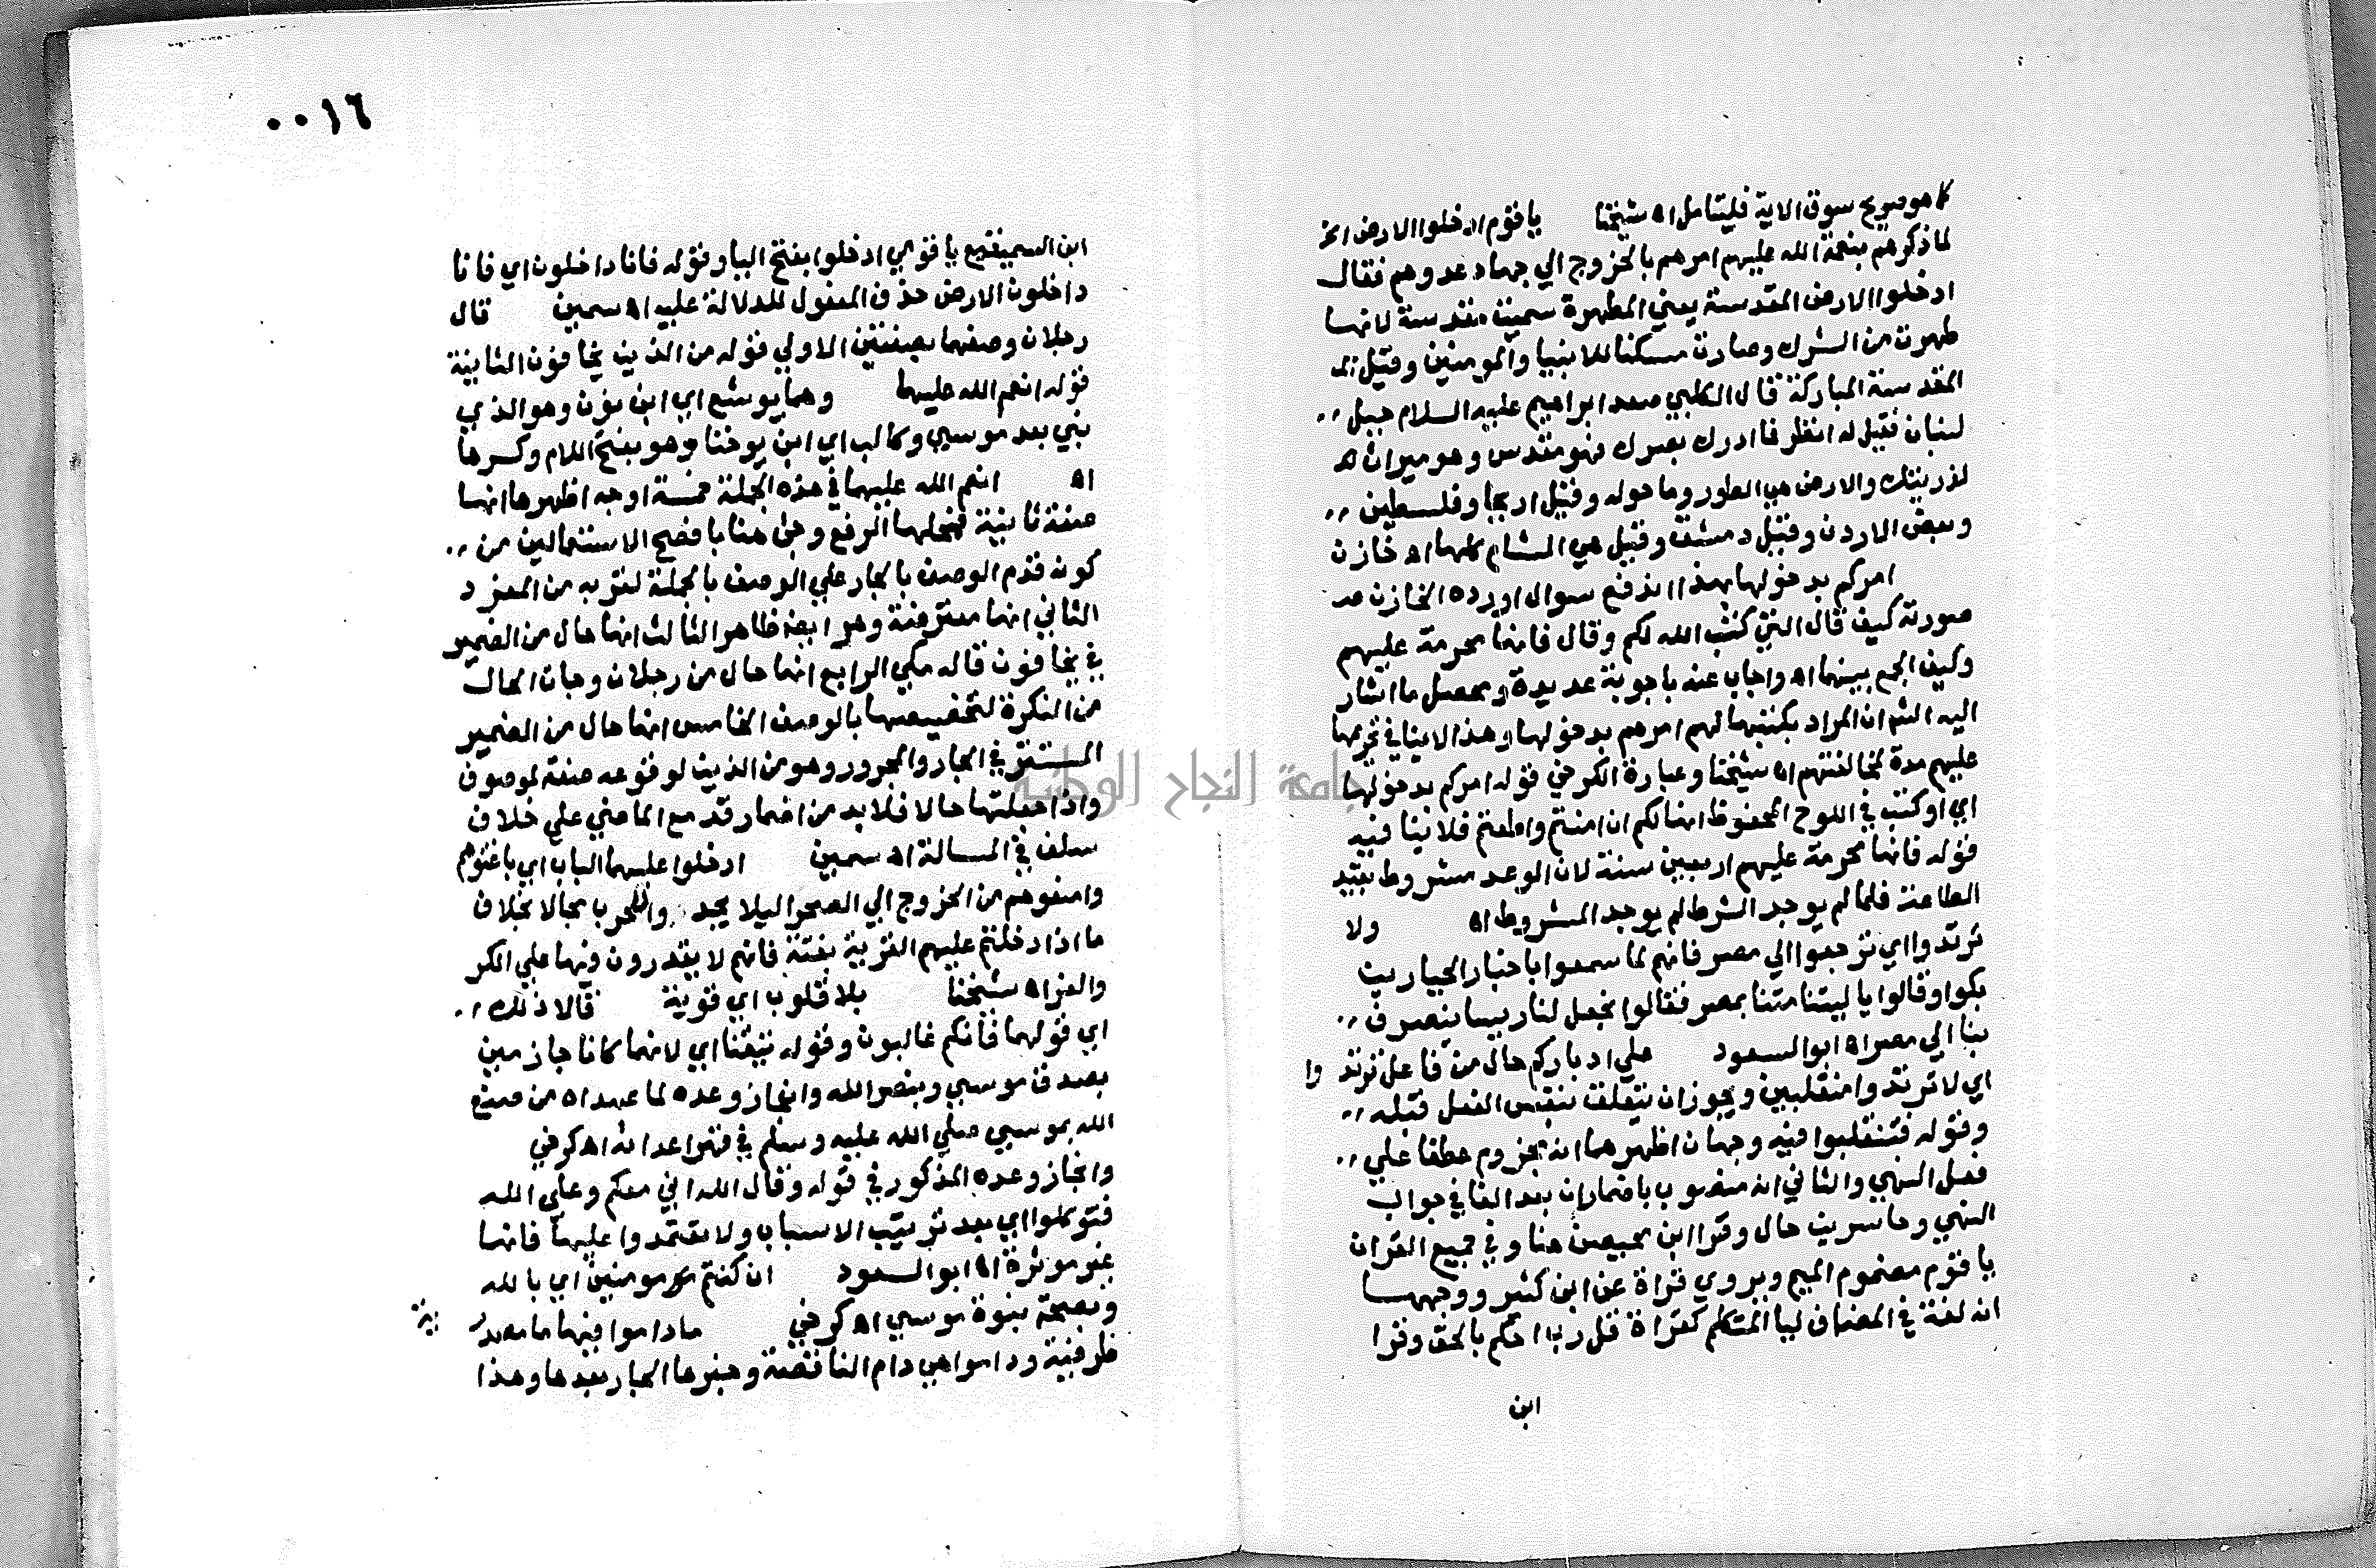 كما هو صريح سوق الاية فليتامل اه شيخنا يا قوم ادخلوا الارض الخ
لما ذكرهم بنعمة الله عليهم امرهم بالخروج الي جهاد عدوهم فقال
ادخلوا الارض المقدسة يعني المطهرة سميت مقدسة لانها
طهرت من الشرك وصارت مسكنا للانبيا والمومنين وقيل
المقدسة المباركة قال الكلبي صعد ابراهيم عليه السلام جبل
لبنان فقيل له انظر فما ادرك بصرك فهو مقدس وهو ميراث
لذريتك والارض هي الطور وما حوله وقيل اريحا وفلسطين
وبعض الاردن وقيل دمشق وقيل هي الشام كلها اه خازن
امركم بدخولها بهذا اندفع سوال اورده الخازن
صورته كيف قال التي كتب الله لكم وقال فانها محرمة عليهم
وكيف الجمع بينهما اه واجاب عنه باجوبة عديدة ومحصل ما اشار
اليه الش ان المراد بكتبها لهم امرهم بدخولها وهذا لا ينافي تحريمها
عليهم مدة لمخالفتهم اه شيخنا وعبارة الكرخي قوله امركم بدخولها
اي او كتب في اللوح المحفوظ انها لكم ان امنتم واطعتم فلا ينافيه
قوله فانها محرمة عليهم اربعين سنة لان الوعد مشروط بقيد
الطاعة فلما لم يوجد الشرط لم يوجد المشروط اه ولا
ترتدوا اي ترجعوا الي مصر فانهم لما سمعوا باخبار الجبارين
بكوا وقالوا يا ليتنا متنا بمصر فقالوا نجعل لنا ربيسا ينصرف
بنا الي مصر اه ابو السعود علي ادباركم حال من فاعل ترتدوا
اي لا ترتدوا منقلبين ويجوز ان تتعلق بنفس الفعل قبله
وقوله فتنقلبوا فيه وجهان اظهرهما انه مجزوم عطفا علي
فعل النهي والثاني انه منصوب باضمار ان بعد الفا في جواب
النهي وخاسرين حال وقرا ابن محيصن هنا وفي جميع القران
يا قوم مضموم الميم ويروي قراة عن ابن كثير ووجهها
انه لغة في المضاف ليا المتكلم كقراة قل رب احكم بالحق وقرا
ابن
٠٠١٦
ابن السميفع يا قومي ادخلوا بفتح اليا وقوله فانا داخلون اي فانا
داخلون الارض حذف المفعول للدلالة عليه اه سمين قال
رجلان وصفهما بصفتين الاولي قوله من الذين يخافون الثانية
قوله انعم الله عليهما وهما يوشع اي ابن نون وهو الذي
نبي بعد موسي وكالب اي ابن يوخنا وهو بفتح اللام وكسرها
اه انعم الله عليهما في هذه الجملة خمسة اوجه اظهرها انها
صفة ثانية فمحلها الرفع وجئ هنا بافصح الاستعمالين من
كونه قدم الوصف بالجار علي الوصف بالجملة لقربه من المفرد
الثاني انها معترضة وهو ايضا ظاهر الثالث انها حال من الضمير
في يخافون قاله مكي الرابع انها حال من رجلان وجات الحال
من النكرة لتخصيصها بالوصف الخامس انها حال من الضمير
المستتر في الجار والمجرور وهو من الذين لوقوعه صفة لموصوف
واذا جعلتها حالا فلا بد من اضمار قد مع الماضي علي خلاف
سلف في المسالة اه سمين ادخلوا عليهما الباب اي باغتوهم
وامنعوهم من الخروج الي الصحرا ليلا يجدوا للحرب مجالا بخلاف
ما اذا دخلتم عليهم القرية بغتة فانهم لا يقدرون فيها علي الكر
والفر اه شيخنا بلا قلوب اي قوية قالا ذلك
اي قولهما فانكم غالبون وقوله تيقنا اي لانهما كانا جازمين
بصدق موسي وبنصر الله وانجاز وعده لما عهداه من صنع
الله بموسي صلي الله عليه وسلم في قهر اعدائه اه كرخي
وانجاز وعده المذكور في قوله وقال الله اني معكم وعلى الله
فتوكلوا اي بعد ترتيب الاسباب ولا تعتمدوا عليها فانها
غير موثرة اه ابو السعود ان كنتم مومنين اي بالله
وبصحة نبوة موسي اه كرخي ما داموا فيها ما مصدرية
ظرفية وداموا هي دام الناقصة وخبرها الجار بعدها وهذا
جامعة النجاح الوطنية